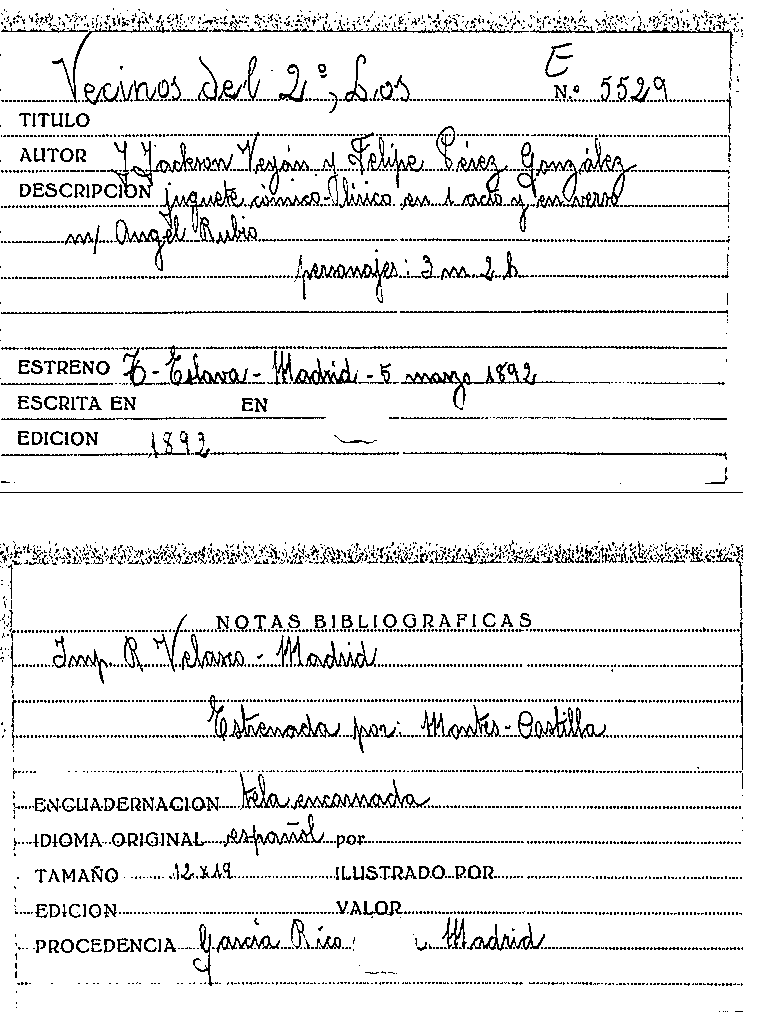 E
Vecinos del 2º, Los N.º 5529
TITULO
AUTOR J Jackson Veyán y Felipe Pérez González
DESCRIPCION juguete cómico-lírico en 1 acto y en verso
m/ Angel Rubio
personajes: 3 m 2 h
ESTRENO T- Eslava - Madrid - 5 marzo 1892
ESCRITA EN EN
EDICION 1892
NOTAS BIBLIOGRAFICAS
Imp. R Velasco - Madrid
Estrenada por: Montes-Castilla
ENCUADERNACION tela encarnada
IDIOMA ORIGINAL español por
TAMAÑO 12x19 ILUSTRADO POR
EDICION VALOR
PROCEDENCIA García Rico Madrid